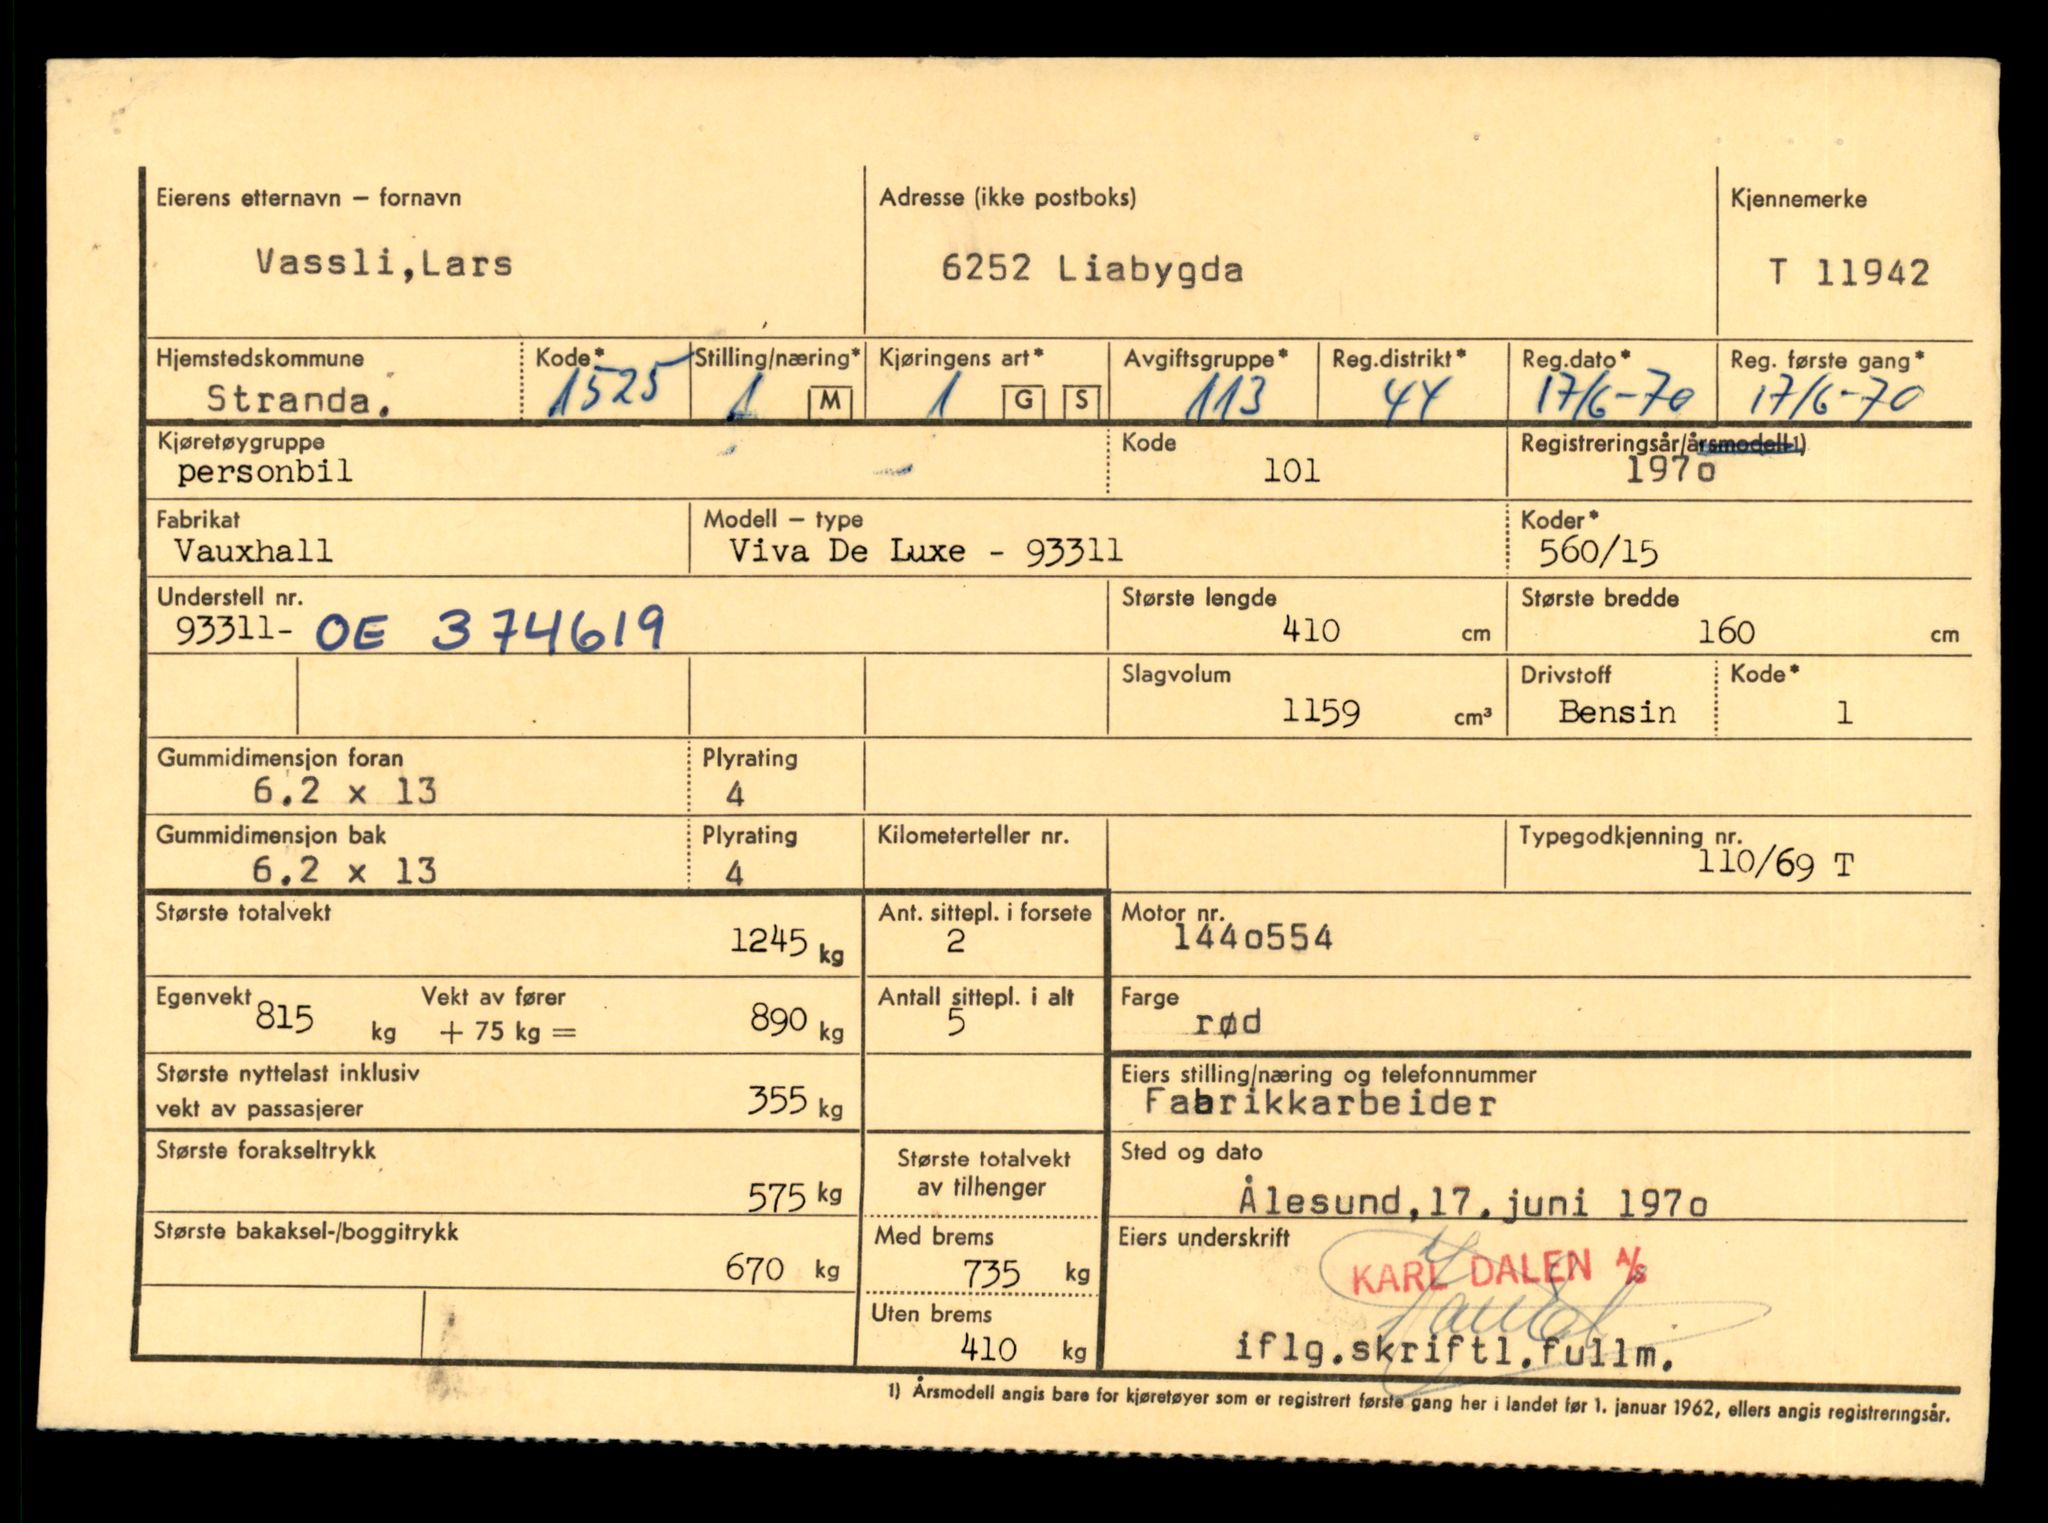 Eierens etternavn – fornavn
Vassli,Lars
Adresse (ikke postboks)
6252 Liabygda
Kjennemerke
T 11942
Hjemstedskommune
Stranda.
Kode*
1525
Stilling/næring*
1 M
Kjøringens art*
1 G S
Avgiftsgruppe*
113
Reg.distrikt*
44
Reg.dato*
17/6-70
Reg. første gang*
17/6-70
Kjøretøygruppe
personbil
Kode
101
Registreringsår/årsmodell 1)
1970
Fabrikat
Vauxhall
Modell – type
Viva De Luxe - 93311
Koder*
560/15
Understell nr.
93311- OE 374619
Største lengde
410 cm
Største bredde
160 cm
Slagvolum
1159 cm³
Drivstoff
Bensin
Kode*
1
Gummidimensjon foran
6.2 x 13
Plyrating
4
Gummidimensjon bak
6.2 x 13
Plyrating
4
Kilometerteller nr.
Typegodkjenning nr.
110/69 T
Største totalvekt
1245 kg
Ant. sittepl. i forsete
2
Motor nr.
1440554
Egenvekt
815 kg
Vekt av fører
+ 75 kg =
890 kg
Antall sittepl. i alt
5
Farge
rød
Største nyttelast inklusiv
vekt av passasjerer
355 kg
Eiers stilling/næring og telefonnummer
Fabrikkarbeider
Største forakseltrykk
575 kg
Største totalvekt
av tilhenger
Sted og dato
Ålesund,17.juni 1970
Største bakaksel-/boggitrykk
670 kg
Med brems
735 kg
Uten brems
410 kg
Eiers underskrift
KARL DALEN A/S
iflg.skriftl.fullm.
1) Årsmodell angis bare for kjøretøyer som er registrert første gang her i landet før 1. januar 1962, ellers angis registreringsår.